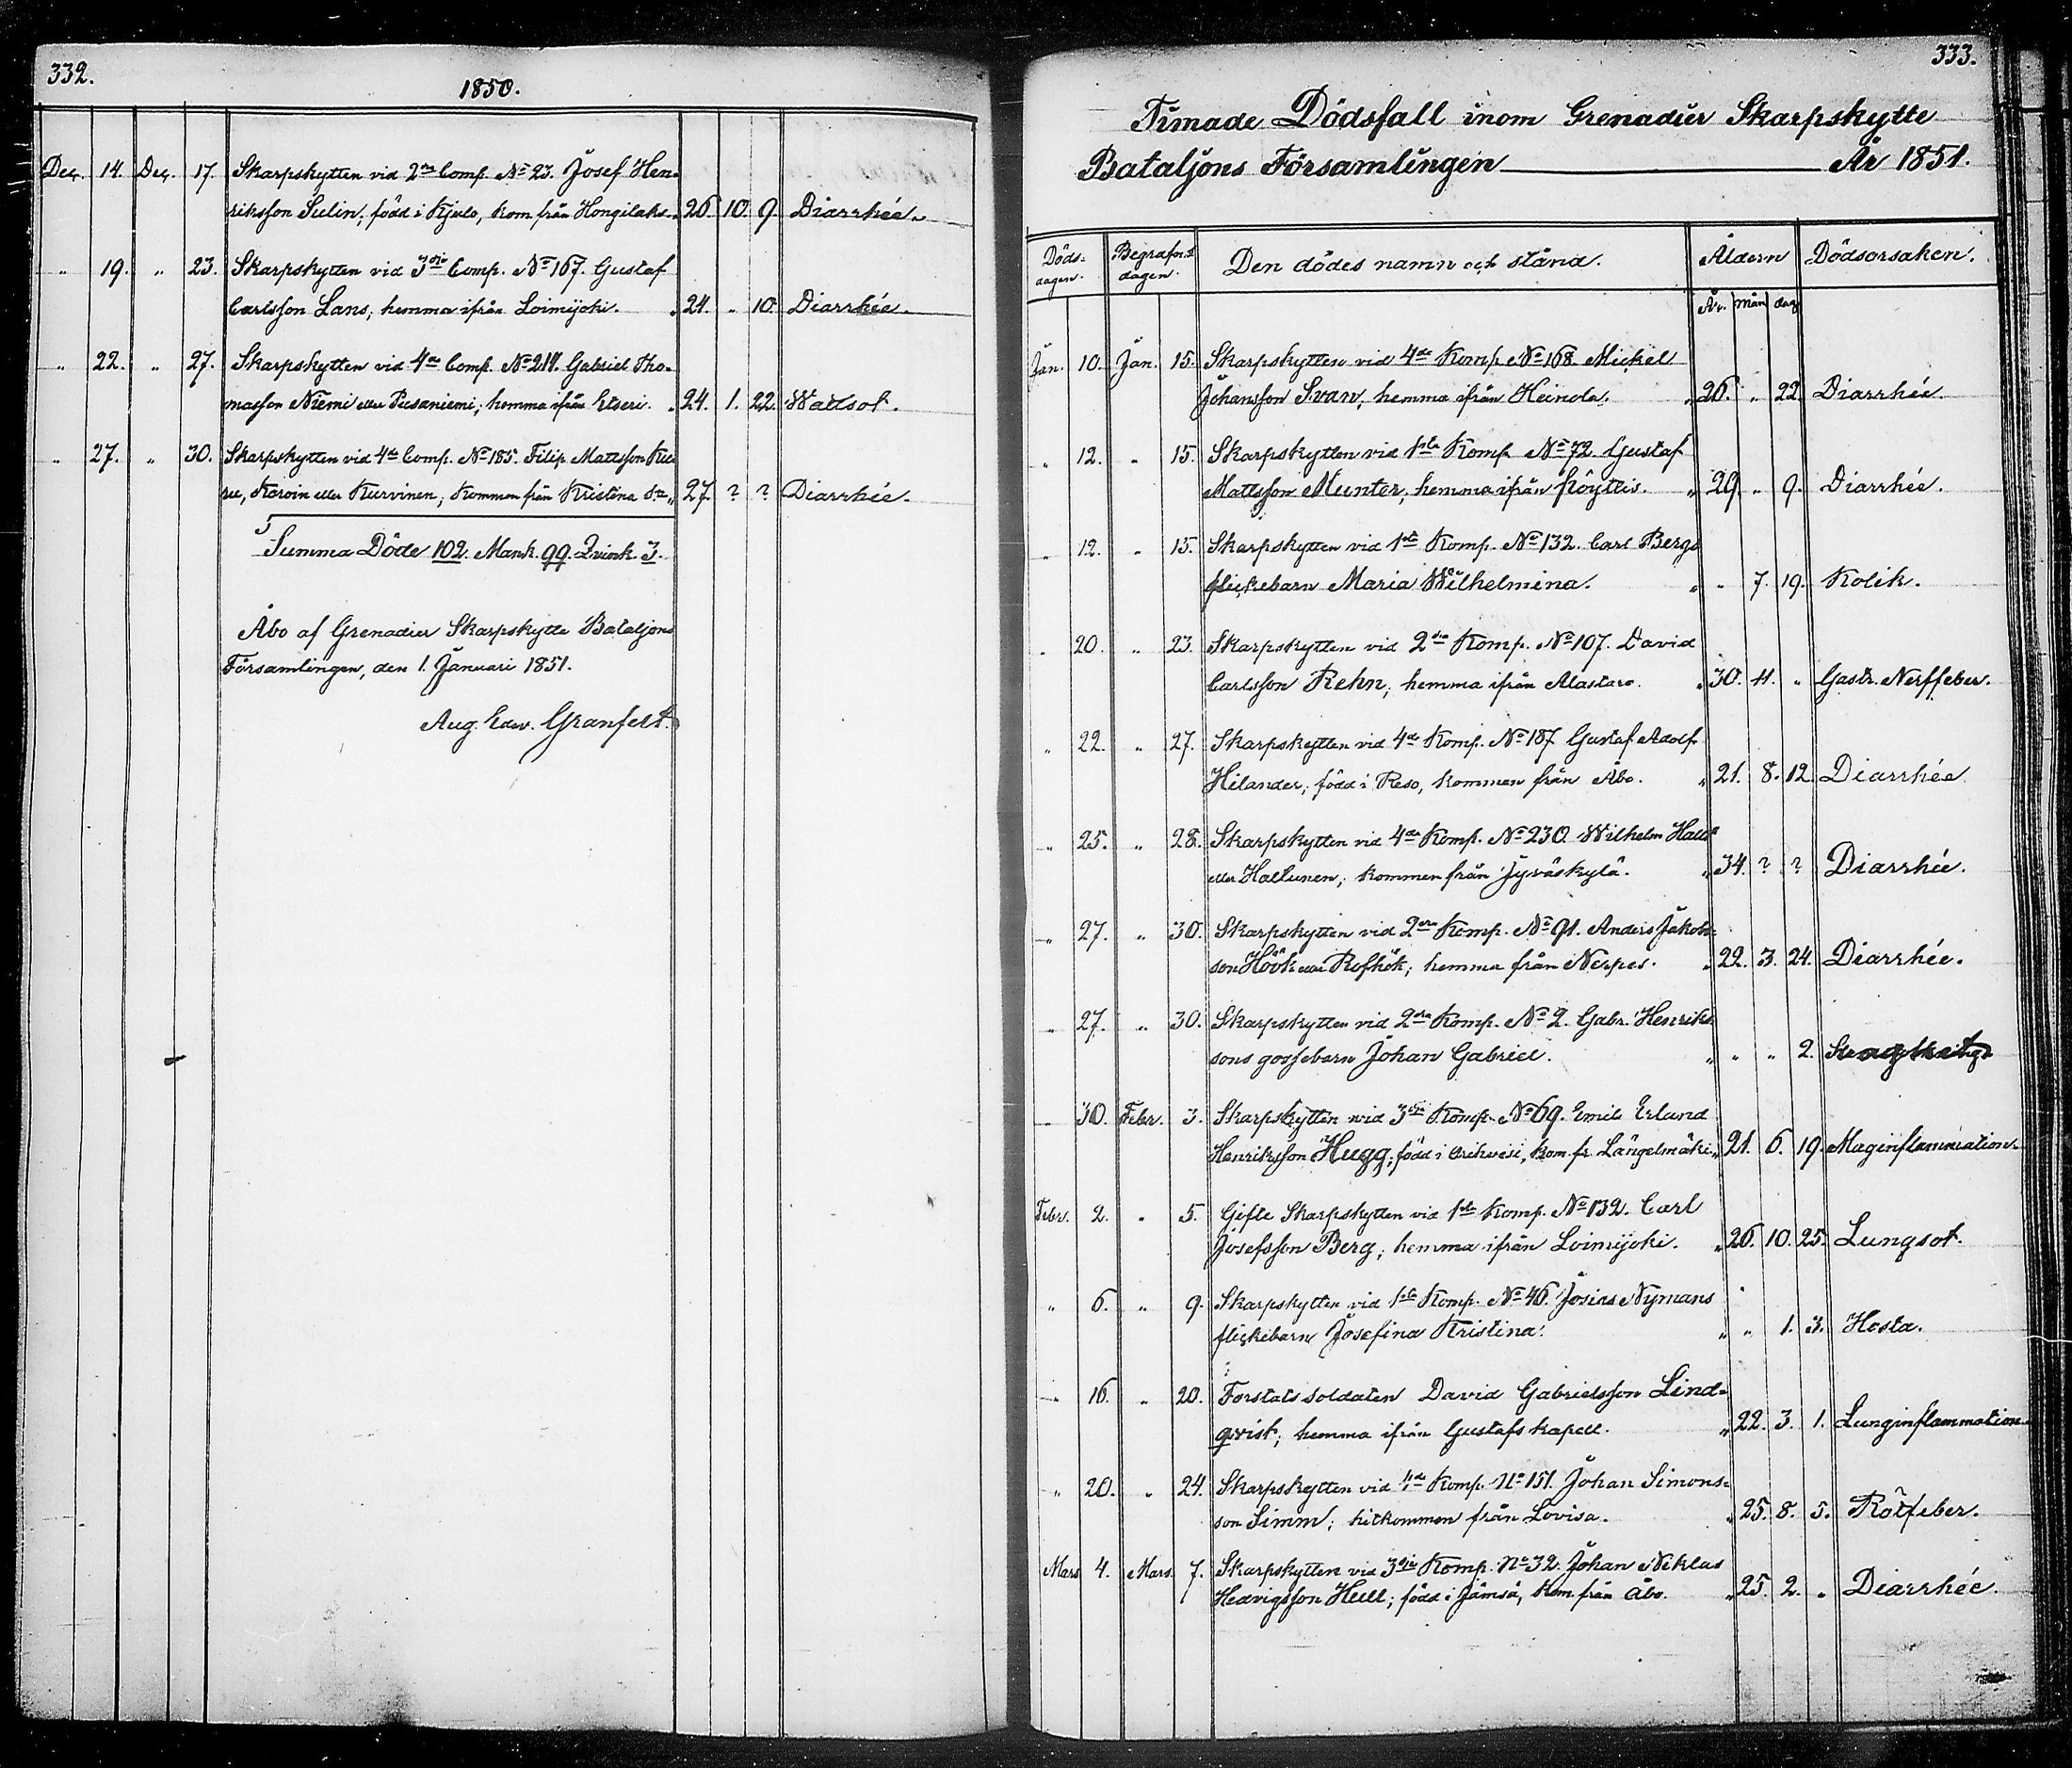 332.
1850.
Dec. 14. Dec. 17. Skarpskytten vid 2dra Comp. No 23. Josef Hen-
riksson Sulin, född i Kjulo, kom från Hongilaks. 26. 10. 9. Diarrhée.
" 19. " 23. Skarpskytten vid 3dje Comp. No 167. Gustaf
Carlsson Lans, hemma ifrån Loimijoki. 24. " 10. Diarrhée.
" 22. " 27. Skarpskytten vid 4de Comp. No 214. Gabriel Tho-
masson Niemi eller Pisaniemi; hemma ifrån Etseri. 24. 1. 22. Wattsot.
" 27. " 30. Skarpskytten vid 4de Comp. No 185. Filip Mattsson
eller Kurvinen; kommen från Kristina 27. ? ? Diarrhée.
Summa Döde 102. Mank. 99. Qvink. 3.
Åbo af Grenadier Skarpskytte Bataljons
Församlingen, den 1. Januari 1851.
Aug. Edw. Granfelt.
333.
Timade Dödsfall inom Grenadier Skarpskytte
Bataljons Församlingen År 1851.
Döds- Begrafn.s Den dödes namn och stånd. Åldern Dödsorsaken.
dagen. dagen.
År. mån dag
Jan. 10. Jan. 15. Skarpskytten vid 4de Komp. No 168. Mickel
Johansson Svan, hemma ifrån Heinola. 26. " 22. Diarrhée.
" 12. " 15. Skarpskytten vid 1sta Komp. No 72. Gustaf
Mattsson Munter, hemma ifrån Pöyttis. 29. " 9. Diarrhée.
" 12. " 15. Skarpskytten vid 1sta Komp. No 132. Carl Bergs
flickebarn Maria Wilhelmina. " " 7. 19. Kolik.
" 20. " 23. Skarpskytten vid 2dra Komp. No 107. David
Carlsson Rehn, hemma ifrån Alastaro. 30. 11. " Gastr. Nerffeber.
" 22. " 27. Skarpskytten vid 4de Komp. No 187 Gustaf Adolf
Hilander, född i Reso, kommen från Åbo. 21. 8. 12. Diarrhée
" 25. " 28. Skarpskytten vid 4de Komp. No 230. Wilhelm Hall
eller Hallunen; kommen från Jyväskylä. 34. ? ? Diarrhée.
" 27. " 30. Skarpskytten vid 2dra Komp. No 91. Anders Jakobs-
son Höök eller Rofhök; hemma från Nerpes. 22. 3. 24. Diarrhée.
" 27. " 30. Skarpskytten vid 2dra Komp. No 2. Gabr. Henriks-
sons gossebarn Johan Gabriel. " " " 2.
" 30. Febr. 3. Skarpskytten vid 3dje Komp. No 69. Emil Erland
Henriksson Hugg, född i Orihvesi, kom. fr. Längelmäki. 21. 6. 19. Maginflammation.
Febr. 2. " 5. Gifte Skarpskytten vid 1sta Komp. No 132. Carl
Josefsson Berg; hemma ifrån Loimijoki. 26. 10. 25. Lungsot.
" 6. " 9. Skarpskytten vid 1sta Komp. No 46. Josias Nymans
flickebarn Josefina Kristina. " " 1. 3. Hosta.
" 16. " 20. Forstats soldaten David Gabrielsson Lind-
qvist; hemma ifrån Gustafs kapell. 22. 3. 1. Lunginflammation.
" 20. " 24. Skarpskytten vid 4de Komp. No 151. Johan Simons-
son Simm; hitkommen från Lovisa. 25. 8. 5. Rötfeber.
Mars 4. Mars. 7. Skarpskytten vid 3dje Komp. No 32. Johan Niklas
Hedvigsson Hell; född i Jämsä, kom. från Åbo. 25. 2. " Diarrhée